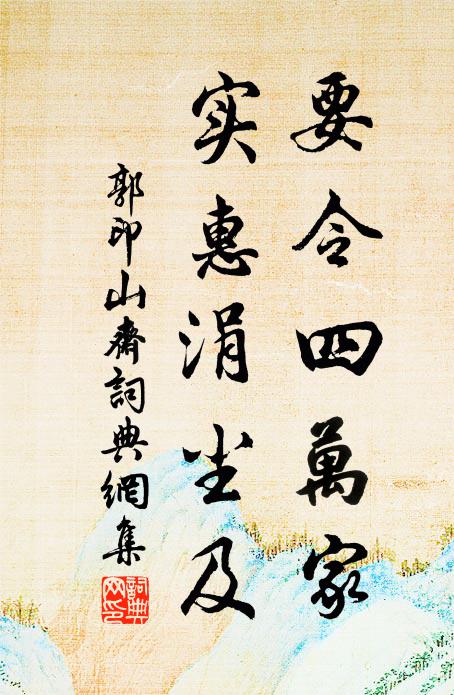 要令四萬家
实惠涓尘及
郭印山齋詞典網集
詞典
网印